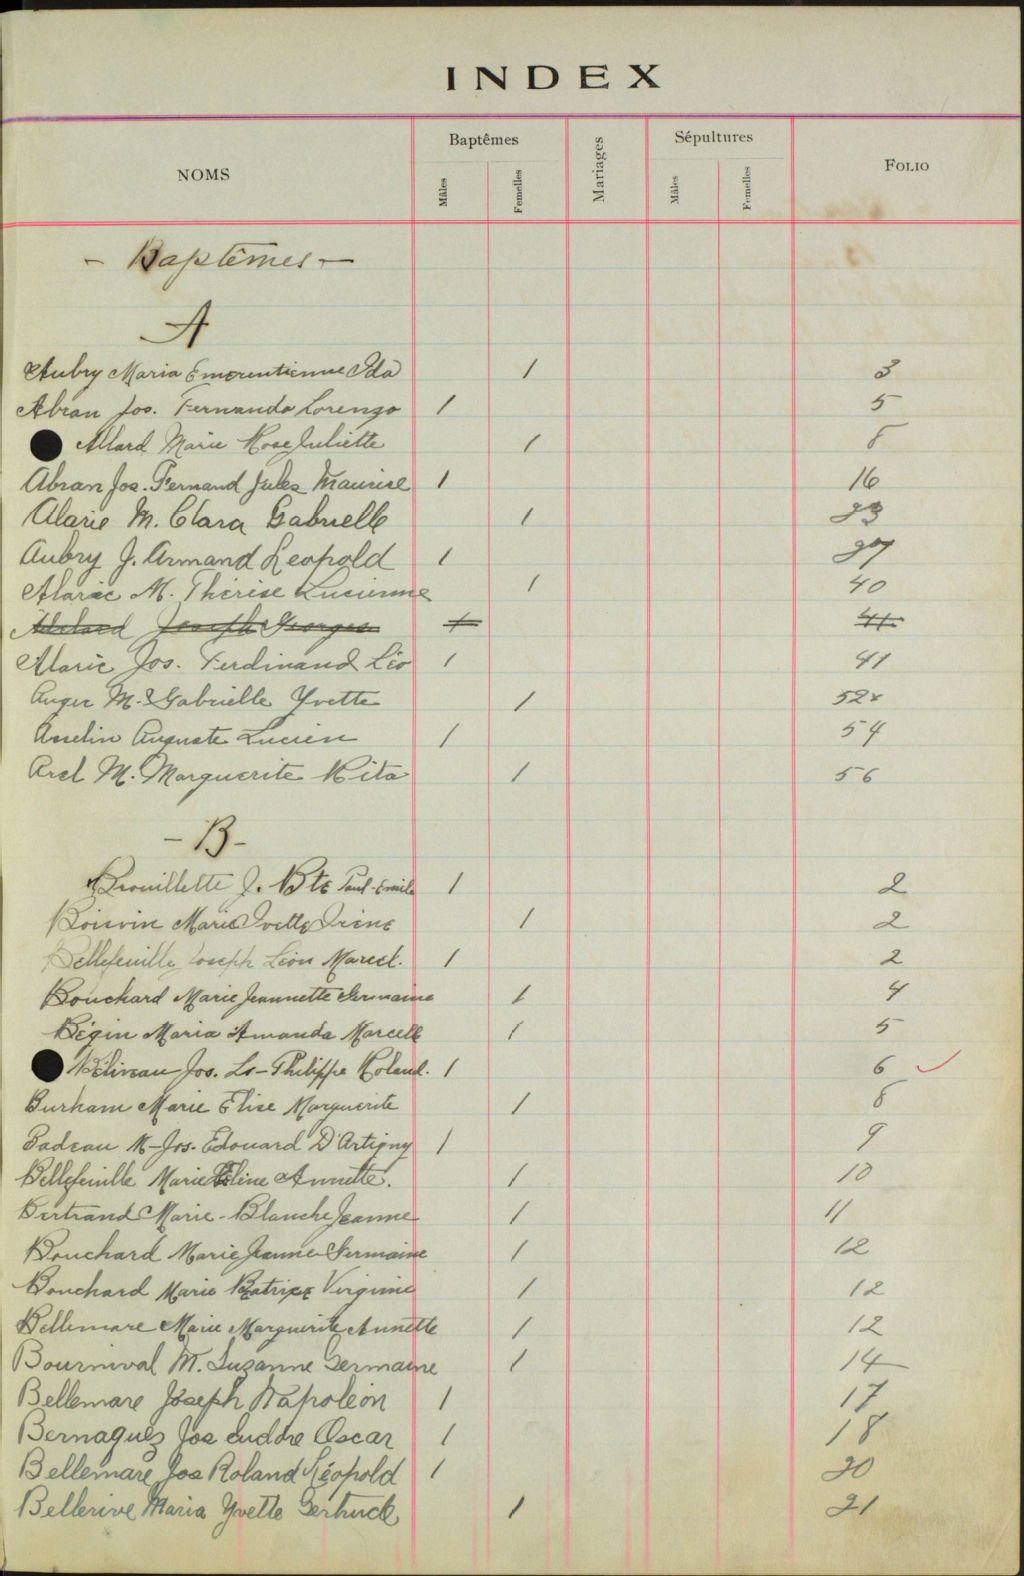 INDEX
NOMS Baptêmes Mâles Femelles Mariages Sépultures Mâles Femelles FOLIO
- Baptêmes -
A
Aubry Maria Emerentienne Ida 1 3
Abran Jos. Fernando Lorenzo 1 5
Allard Marie Rose Juliette 1 8
Abran Jos. Fernand Jules Maurice 1 16
Alarie M. Clara Gabrielle 1 23
Aubry J. Armand Leopold 1 27
Alarie M. Thérèse Lucienne 1 40
Joseph Georges 1 41
Alarie Jos. Ferdinand Léo 1 41
Auger M. Gabrielle Yvette 1 52
Asselin Auguste Lucien 1 54
Arel M. Marguerite Rita 1 56
- B -
Brouillette J. Bte Paul-Emile 1 2
Boisvin Marie Yvette Irène 1 2
Bellefeuille Joseph Léon Marcel. 1 2
Bouchard Marie Jeannette Germaine 1 4
Bégin Maria Amanda Marcelle 1 5
Bélineau Jos. Ls-Philippe Roland. 1 6 ✓
Burham Marie Elise Marguerite 1 8
Badeau M-Jos. Edouard D'Artigny 1 9
Bellefeuille Marie Céline Annette. 1 10
Bertrand Marie-Blanche Jeanne 1 11
Bouchard Marie Jeanne Germaine 1 12
Bouchard Marie Béatrix Virginie 1 12
Bellemare Marie Marguerite Annette 1 12
Bournival M. Suzanne Germaine 1 14
Bellemare Joseph Napoléon 1 17
Bernaquez Jos Eudore Oscar 1 18
Bellemare Jos Roland Léopold 1 20
Bellerive Maria Yvette Gertrude 1 21